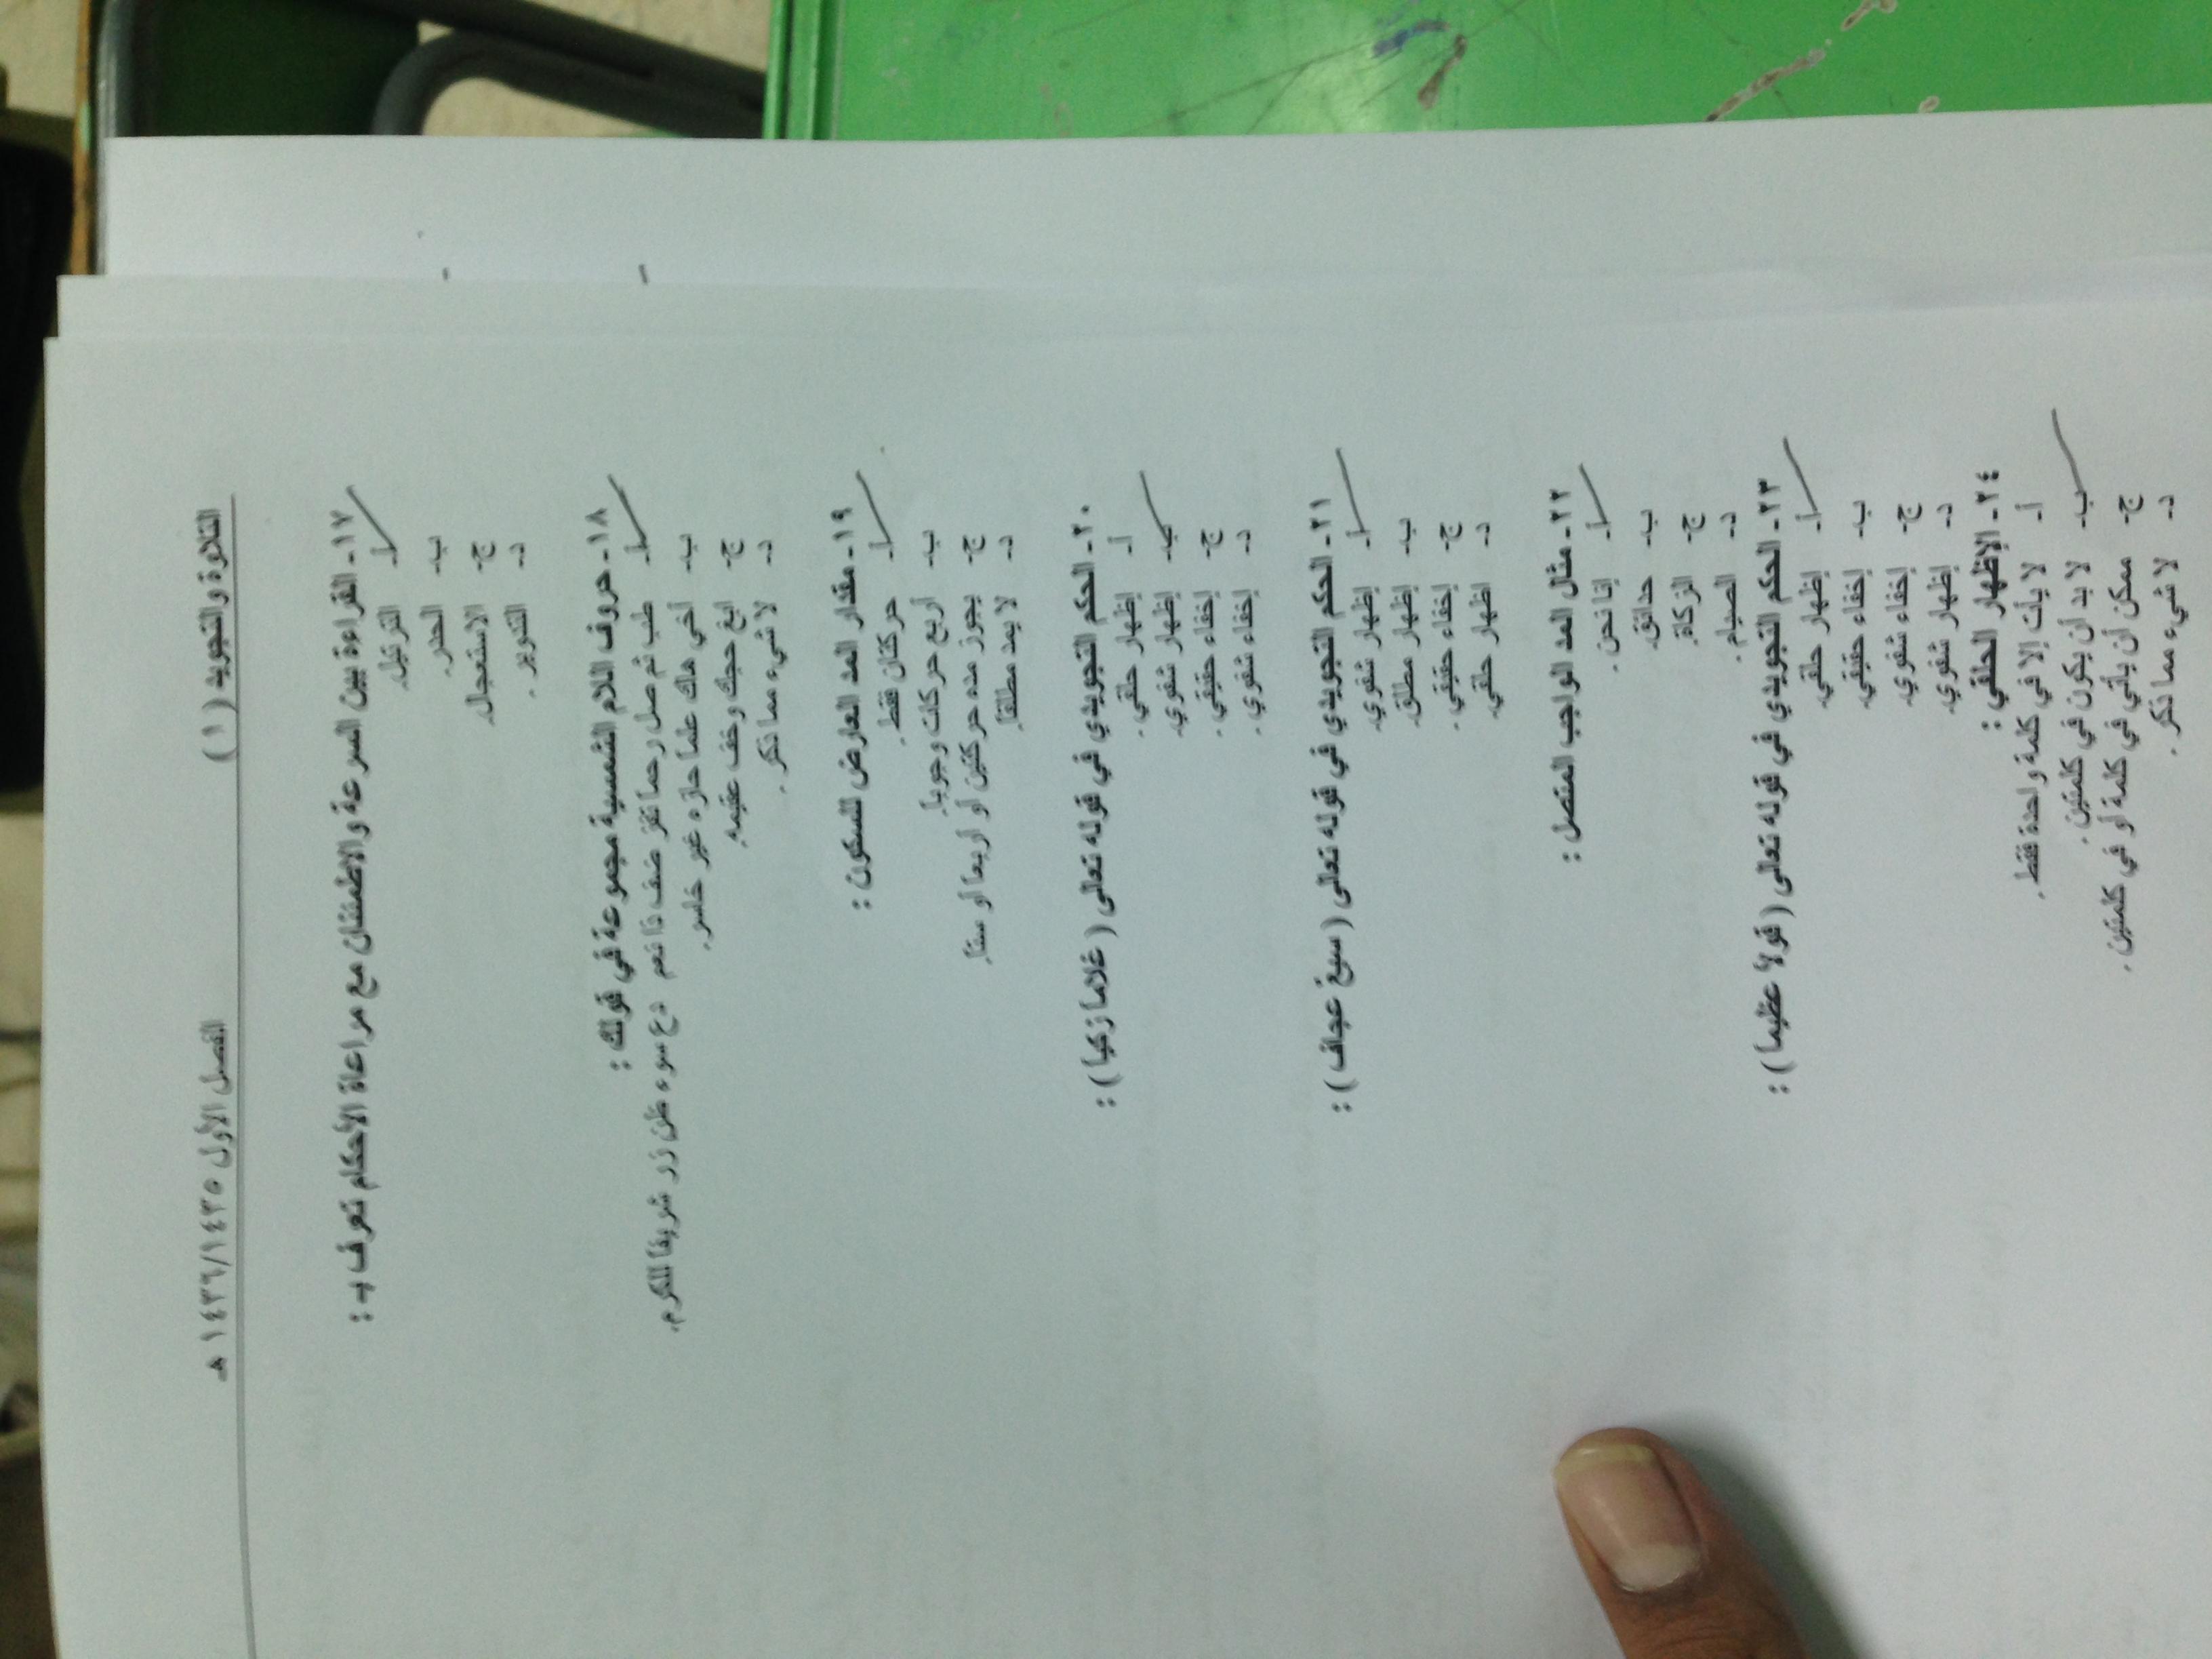 التلاوة والتجويد ( ١ ) الفصل الأول ١٤٣٦/١٤٣٥ هـ
١٧- القراءة بين السرعة والاطمئنان مع مراعاة الأحكام تعرف بـ :
أ- الترتيل.
ب- الحدر.
ج- الاستعجال.
د- التدوير .
١٨- حروف اللام الشمسية مجموعة في قولك :
أ- طب ثم صل رحما تفز ضف ذا نعم دع سوء ظن زر شريفا للكرم.
ب- أخي هاك علما حازه غير خاسر.
ج- ابغ حجك وخف عقيمه.
د- لا شيء مما ذكر .
١٩- مقدار المد العارض للسكون :
أ- حركتان فقط.
ب- أربع حركات وجوبا.
ج- يجوز مده حركتين أو أربعا أو ستا.
د- لا يمد مطلقا.
٢٠- الحكم التجويدي في قوله تعالى ( غلاما زكيا ) :
أ- إظهار حلقي .
ب- إظهار شفوي.
ج- إخفاء حقيقي .
د- إخفاء شفوي .
٢١- الحكم التجويدي في قوله تعالى ( سبع عجاف ) :
أ- إظهار شفوي.
ب- إظهار مطلق.
ج- إخفاء حقيقي .
د- إظهار حلقي.
٢٢- مثال المد الواجب المتصل :
أ- إنا نحن .
ب- حدائق.
ج- الزكاة.
د- الصيام .
٢٣- الحكم التجويدي في قوله تعالى ( قولا عظيما ) :
أ- إظهار حلقي.
ب- إخفاء حقيقي.
ج- إخفاء شفوي.
د- إظهار شفوي.
٢٤- الإظهار الحلقي :
أ- لا يأت إلا في كلمة واحدة فقط.
ب- لا بد أن يكون في كلمتين .
ج- ممكن أن يأتي في كلمة أو في كلمتين .
د- لا شيء مما ذكر .